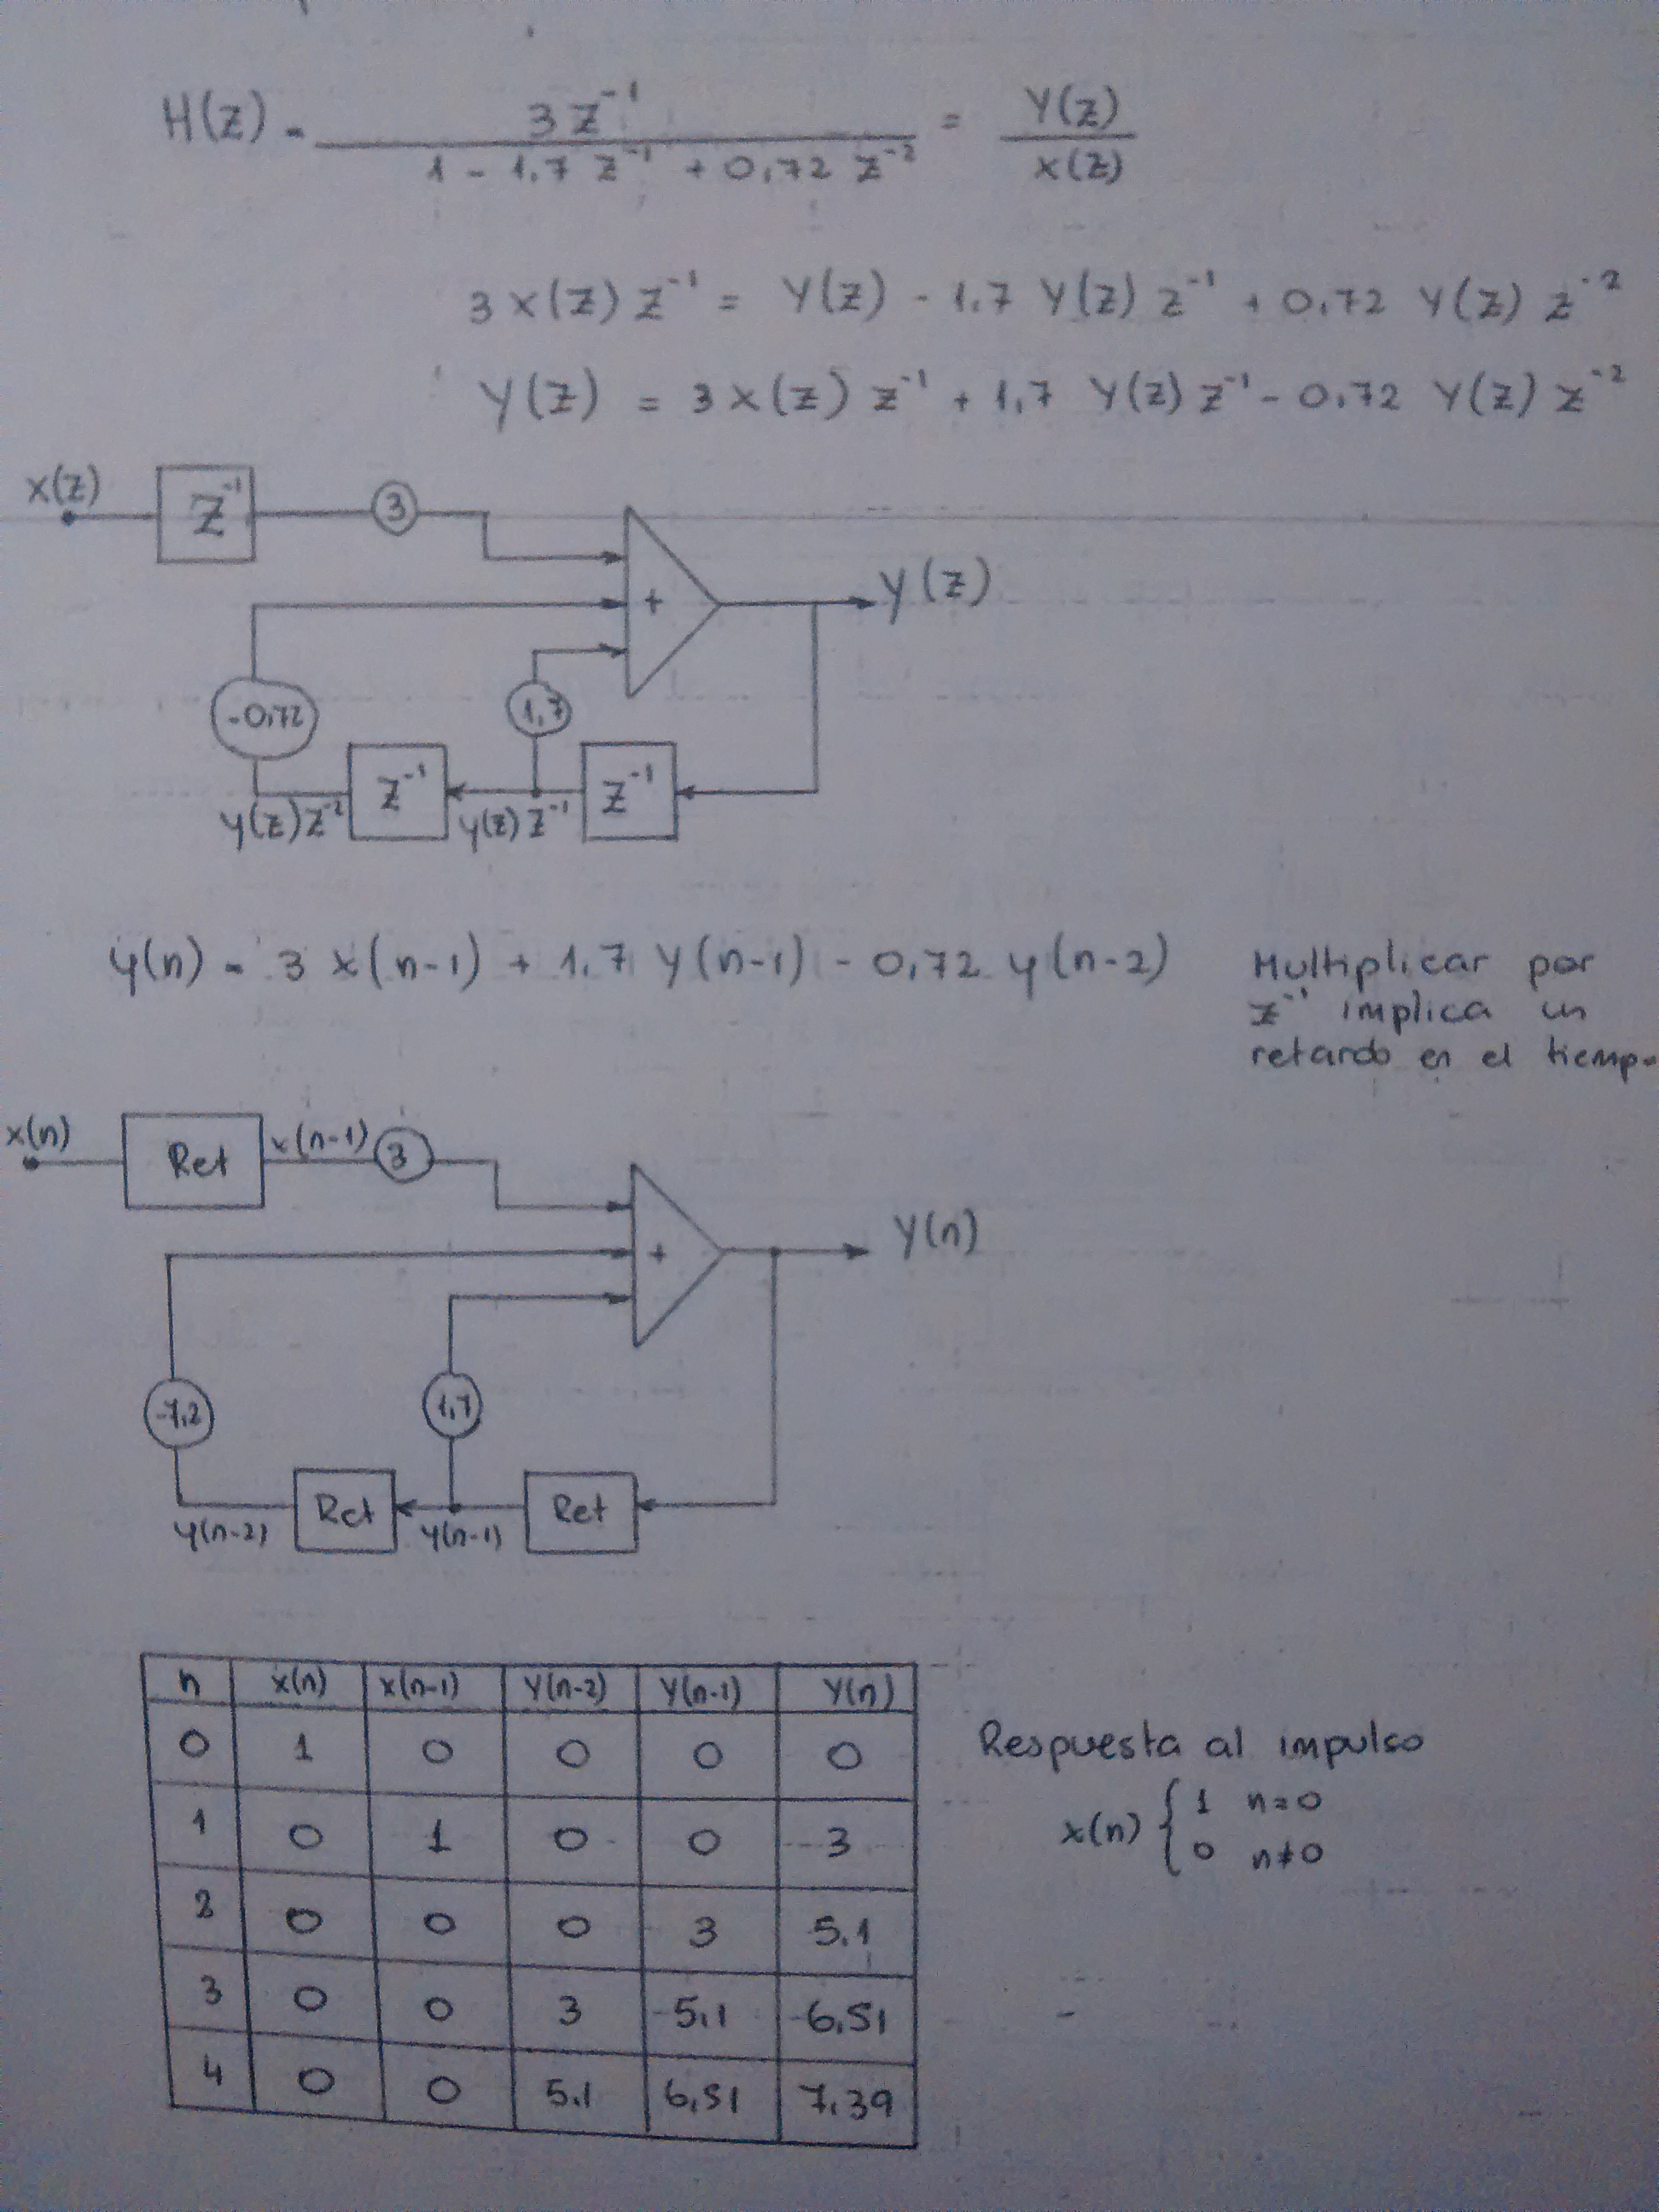 H(z) = 3 z⁻¹ / (1 - 1,7 z⁻¹ + 0,72 z⁻²) = Y(z) / X(z)
3 X(z) z⁻¹ = Y(z) - 1,7 Y(z) z⁻¹ + 0,72 Y(z) z⁻²
Y(z) = 3 X(z) z⁻¹ + 1,7 Y(z) z⁻¹ - 0,72 Y(z) z⁻²
X(z) z⁻¹ 3
+ Y(z)
-0,72 1,7
z⁻¹ z⁻¹
y(z) z⁻² y(z) z⁻¹
y(n) = 3 x(n-1) + 1,7 y(n-1) - 0,72 y(n-2)
Multiplicar por
z⁻¹ implica un
retardo en el tiempo
x(n) Ret x(n-1) 3
+ Y(n)
-7,2 1,7
Ret Ret
y(n-2) y(n-1)
n x(n) x(n-1) Y(n-2) Y(n-1) Y(n)
0 1 0 0 0 0
1 0 1 0 0 3
2 0 0 0 3 5,1
3 0 0 3 5,1 6,51
4 0 0 5,1 6,51 7,39
Respuesta al impulso
x(n) { 1 n=0
0 n≠0